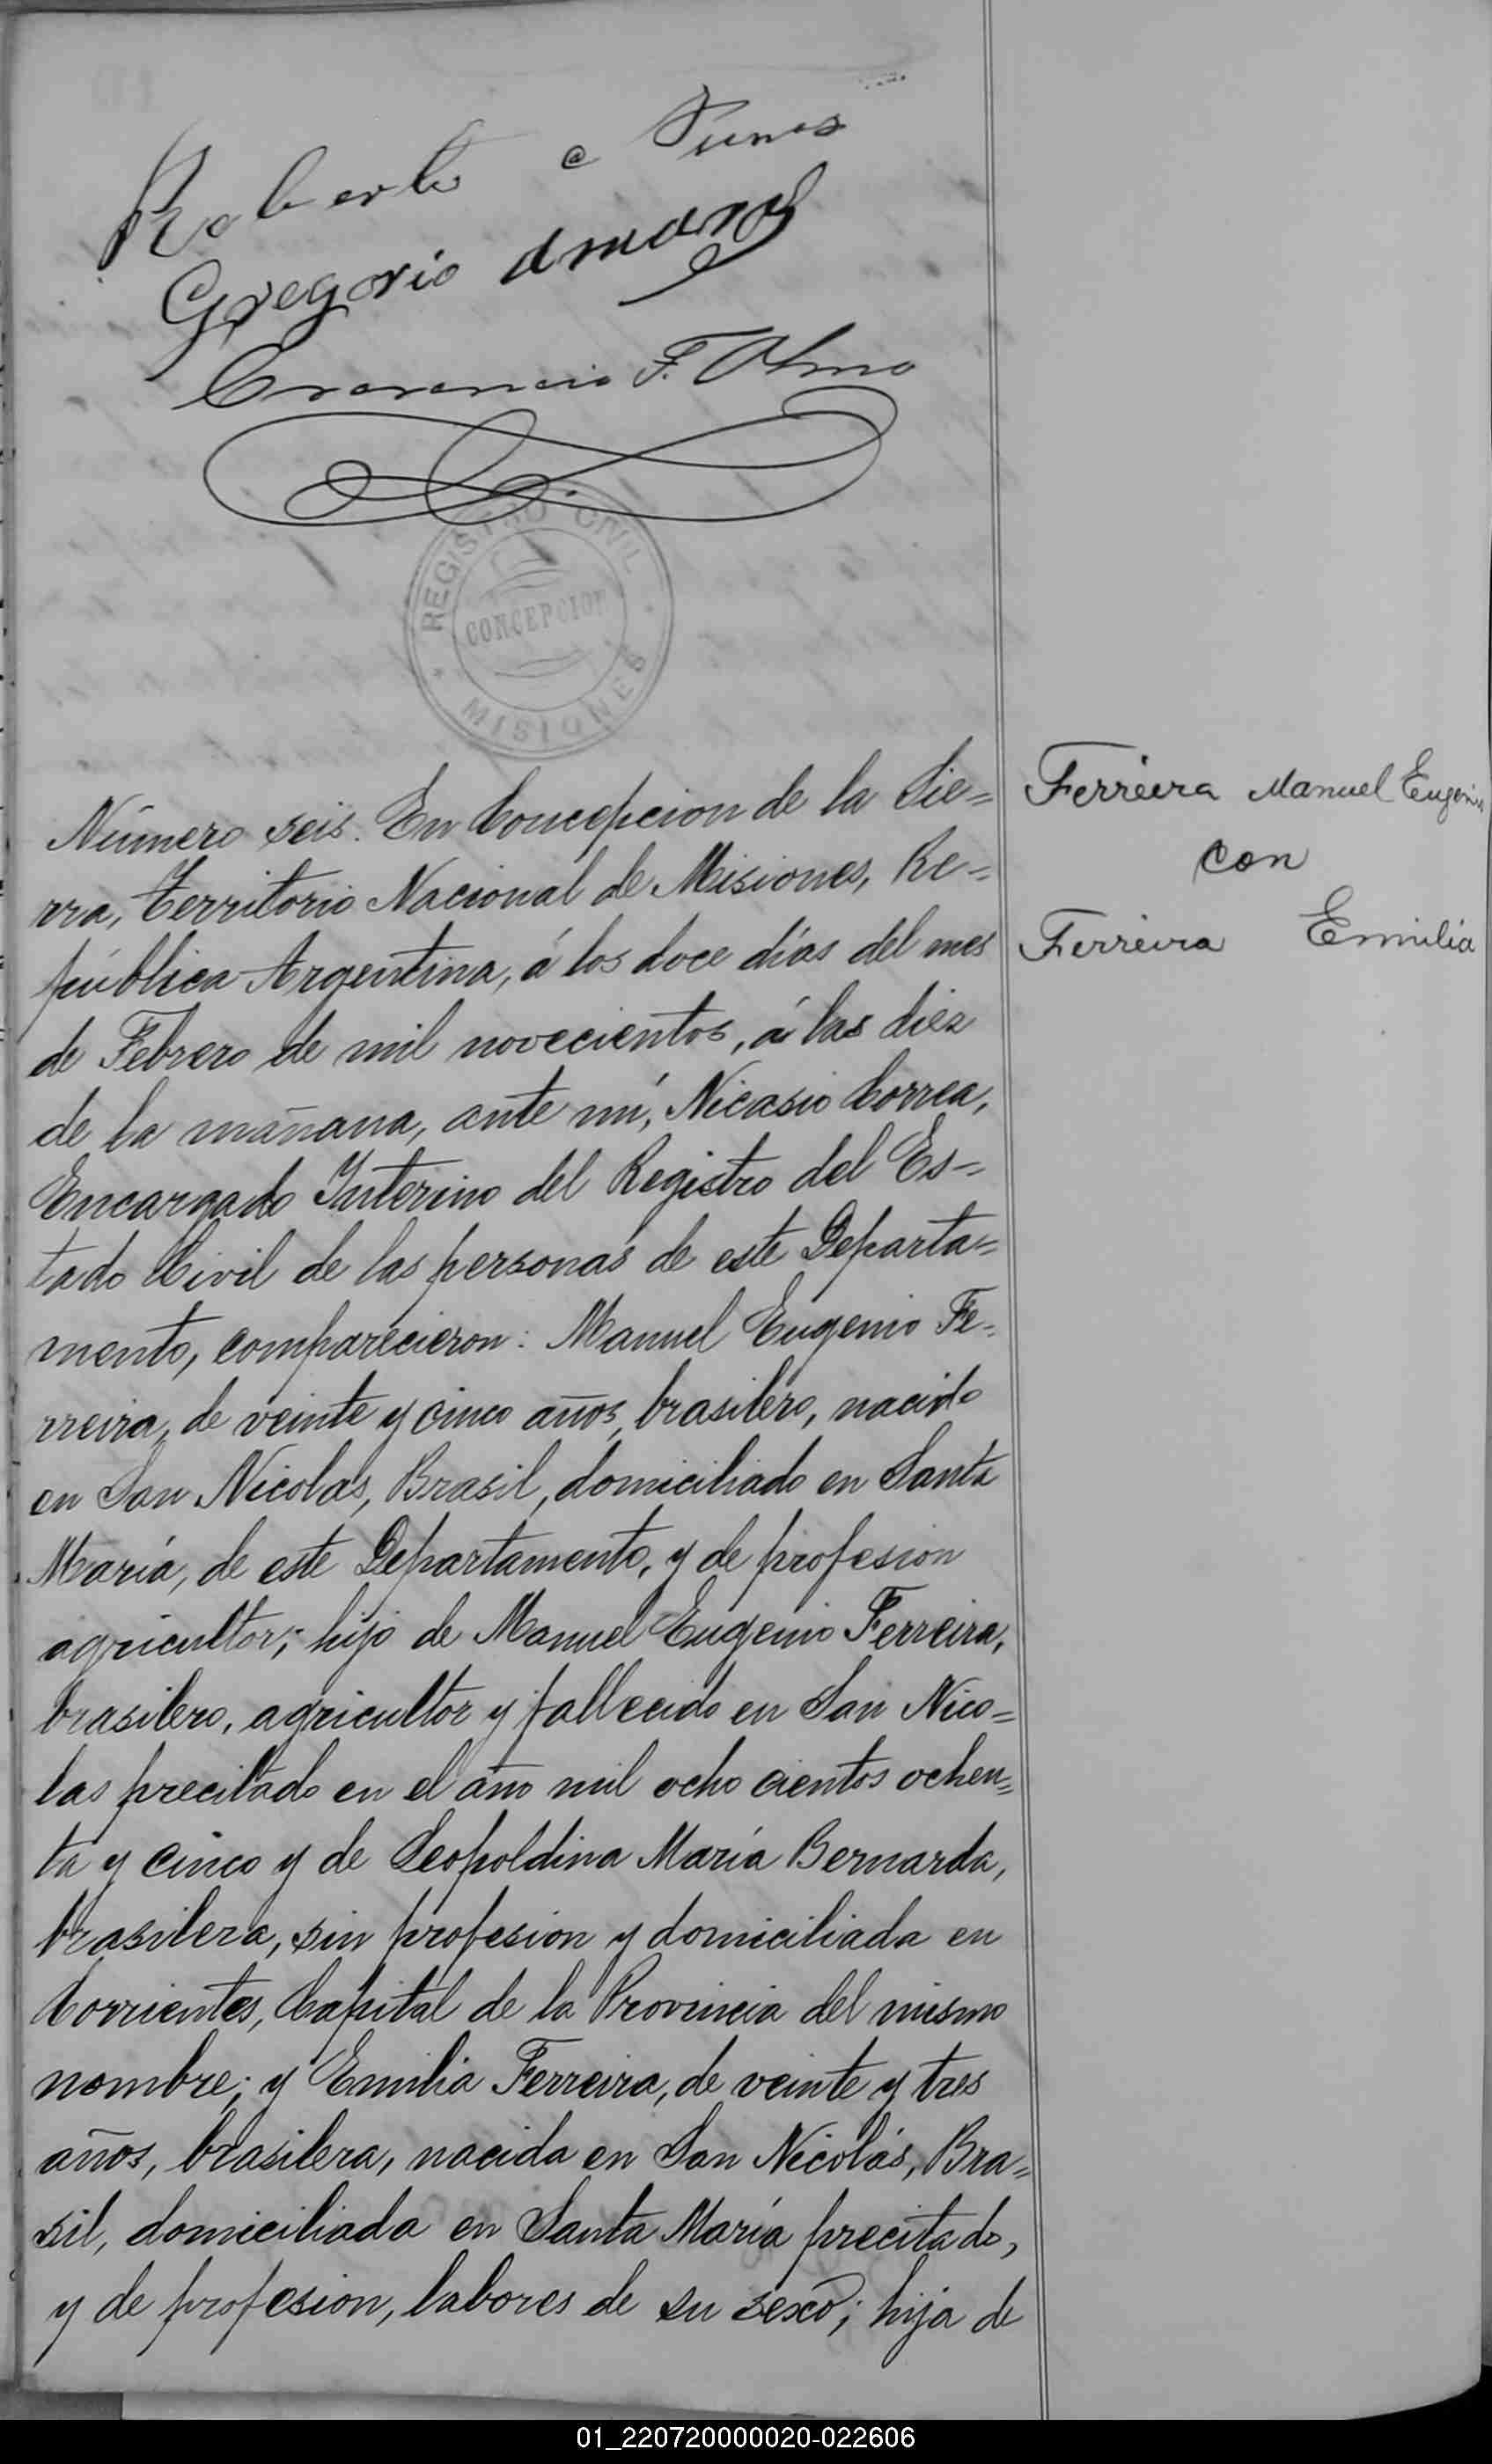 Roberto a Funes
Gregorio Amaral
F. Olmo
REGISTRO CIVIL
CONCEPCION
MISIONES
Ferreira Manuel Eugenio
con
Ferreira Emilia
Número seis. En Concepcion de la Sie=
rra, Territorio Nacional de Misiones, Re=
pública Argentina, á los doce días del mes
de Febrero de mil novecientos, á las diez
de la mañana, ante mí, Nicasio Correa,
Encargado Interino del Registro del Es=
tado Civil de las personas de este Departa=
mento, comparecieron: Manuel Eugenio Fe=
rreira, de veinte y cinco años, brasilero, nacido
en San Nicolas, Brasil, domiciliado en Santa
María, de este Departamento, y de profesion
agricultor; hijo de Manuel Eugenio Ferreira,
brasilero, agricultor y fallecido en San Nico=
las precitado en el año mil ocho cientos ochen=
ta y cinco y de Leopoldina María Bernarda,
brasilera, sin profesion y domiciliada en
Corrientes, Capital de la Provincia del mismo
nombre; y Emilia Ferreira, de veinte y tres
años, brasilera, nacida en San Nicolás, Bra=
sil, domiciliada en Santa María precitado,
y de profesion, labores de su sexo; hija de
01_220720000020-022606